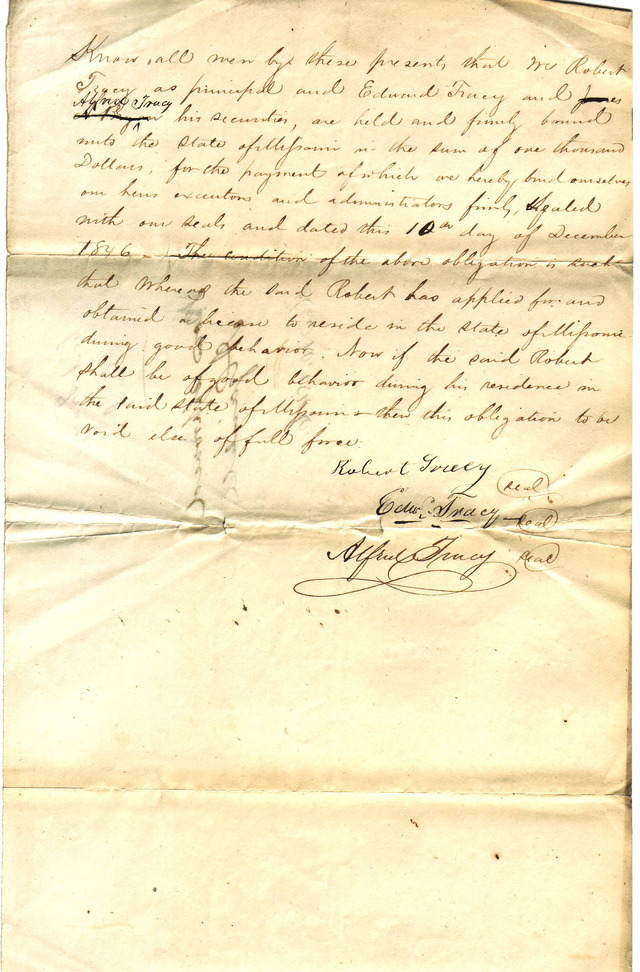 Know all men by these presents that We Robert
Tracy as principal and Edward Tracy and James
Alfred Tracy
his securities, are held and firmly bound
unto the State of Missouri in the sum of one thousand
Dollars, for the payment of which we hereby bind ourselves
our heirs executors and administrators firmly, Sealed
with our seals and dated this 10th day of December
1846 – The condition of the above obligation is such
that Whereas the said Robert has applied for and
obtained a license to reside in the State of Missouri
during good behavior. Now if the said Robert
shall be of good behavior during his residence in
the said State of Missouri then this obligation to be
void else of full force.
Robert Tracy seal
Edwd. Tracy seal
Alfred Tracy seal